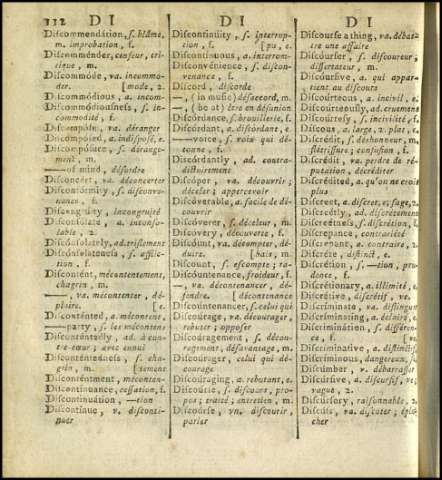 112 D I
Diſcommendátion, ſ. blâme,
m. improbation, f.
Diſcomménder, cenſeur, cri-
tique, m.
Diſcommóde, va. incommo-
der [mode, 2.
Diſcommódious, a. incom-
Diſcommódiouſneſs, ſ. in-
commodité, f.
Diſcompóſe, va. déranger
Diſcompóſed, a. indiſpoſé, e.
Diſcompóſure, ſ. dérange-
ment, m.
—— of mind, déſordre
Diſconcért, va. déconcerter
Diſconfórmity, ſ. diſconve-
nance, f.
Diſcongrúity, incongruité
Diſcónſolate, a. inconſo-
lable, 2.
Diſcónſolately, ad. triſtement
Diſcónſolateneſs, ſ. afflic-
tion, f.
Diſcontént, mécontentement,
chagrin, m.
——, va. mécontenter, dé-
plaire. [e.
Diſconténted, a. mécontent,
—— party, ſ. les mécontens
Diſconténtedly, ad. à con-
tre-cœur; avec ennui
Diſconténtedneſs, ſ. cha-
grin, m. [tement
Diſconténtment, méconten-
Diſcontínuance, ceſſation, f.
Diſcontinuátion, —tion
Diſcontínue, v. diſconti-
nuer
D I
Diſcontinúity, ſ. interrup-
tion, f. [pu, e.
Diſcontínuous, a. interrom-
Diſconvénience, ſ. diſcon-
venance, f.
Díſcord, diſcorde
—, (in muſic) déſaccord, m.
—, (be at) être en déſunion
Diſcórdance, ſ. brouillerie, f.
Diſcórdant, a. diſcordant, e.
—— voice, ſ. voix qui dé-
tonne, f.
Diſcórdantly, ad. contra-
dictoirement
Diſcóver, va. découvrir;
déceler; appercevoir
Diſcóverable, a. facile de dé-
couvrir
Diſcóverer, ſ. déceleur, m.
Diſcóvery, découverte, f.
Diſcóunt, va. décompter, dé-
duire. [bais, m.
Díſcount, ſ. eſcompte; ra-
Diſcóuntenance, froideur, f.
——, va. décontenancer, dé-
fendre. [décontenance
Diſcóuntenancer, ſ. celui qui
Diſcóurage, va. décourager,
rebuter; oppoſer
Diſcóuragement, ſ. décou-
ragement, déſavantage, m.
Diſcóurager, celui qui dé-
courage
Diſcóuraging, a. rebutant, e.
Diſcóurſe, ſ. diſcours, pro-
pos; traité; entretien, m.
Diſcóurſe, vn. diſcourir,
parler
D I
Diſcóurſe a thing, va. débat-
tre une affaire
Diſcóurſer, ſ. diſcoureur;
diſſertateur, m.
Diſcóurſive, a. qui appar-
tient au diſcours
Diſcóurteous, a. incivil, e.
Diſcóurteouſly, ad. cruement
Diſcóurteſy, ſ. incivilité, f.
Díſcous, a. large, 2. plat, e.
Diſcrédit, ſ. déshonneur, m.
flétriſſure; confuſion, f.
Diſcrédit, va. perdre de ré-
putation, décréditer
Diſcrédited, a. qu'on ne croit
plus
Diſcréet, a. diſcret, e; ſage, 2.
Diſcréetly, ad. diſcrétement
Diſcréetneſs, ſ. diſcrétion, f.
Díſcrepance, contrariété, f.
Díſcrepant, a. contraire, 2.
Diſcréte, diſtinct, e.
Diſcrétion, ſ. —tion, pru-
dence, f.
Diſcrétionary, a. illimité, e.
Diſcrétive, diſcrétif, ve.
Diſcríminate, va. diſtinguer
Diſcríminating, a. déciſif, e.
Diſcriminátion, ſ. différen-
ce, f. [ve.
Diſcríminative, a. diſtinctif,
Diſcríminous, dangereux, ſe
Diſcúmber, v. débarraſſer
Diſcúrſive, a. diſcurſif, ve;
vague, 2.
Diſcúrſory, raiſonnable, 2.
Diſcúſs, va. diſcuter; éplu-
cher